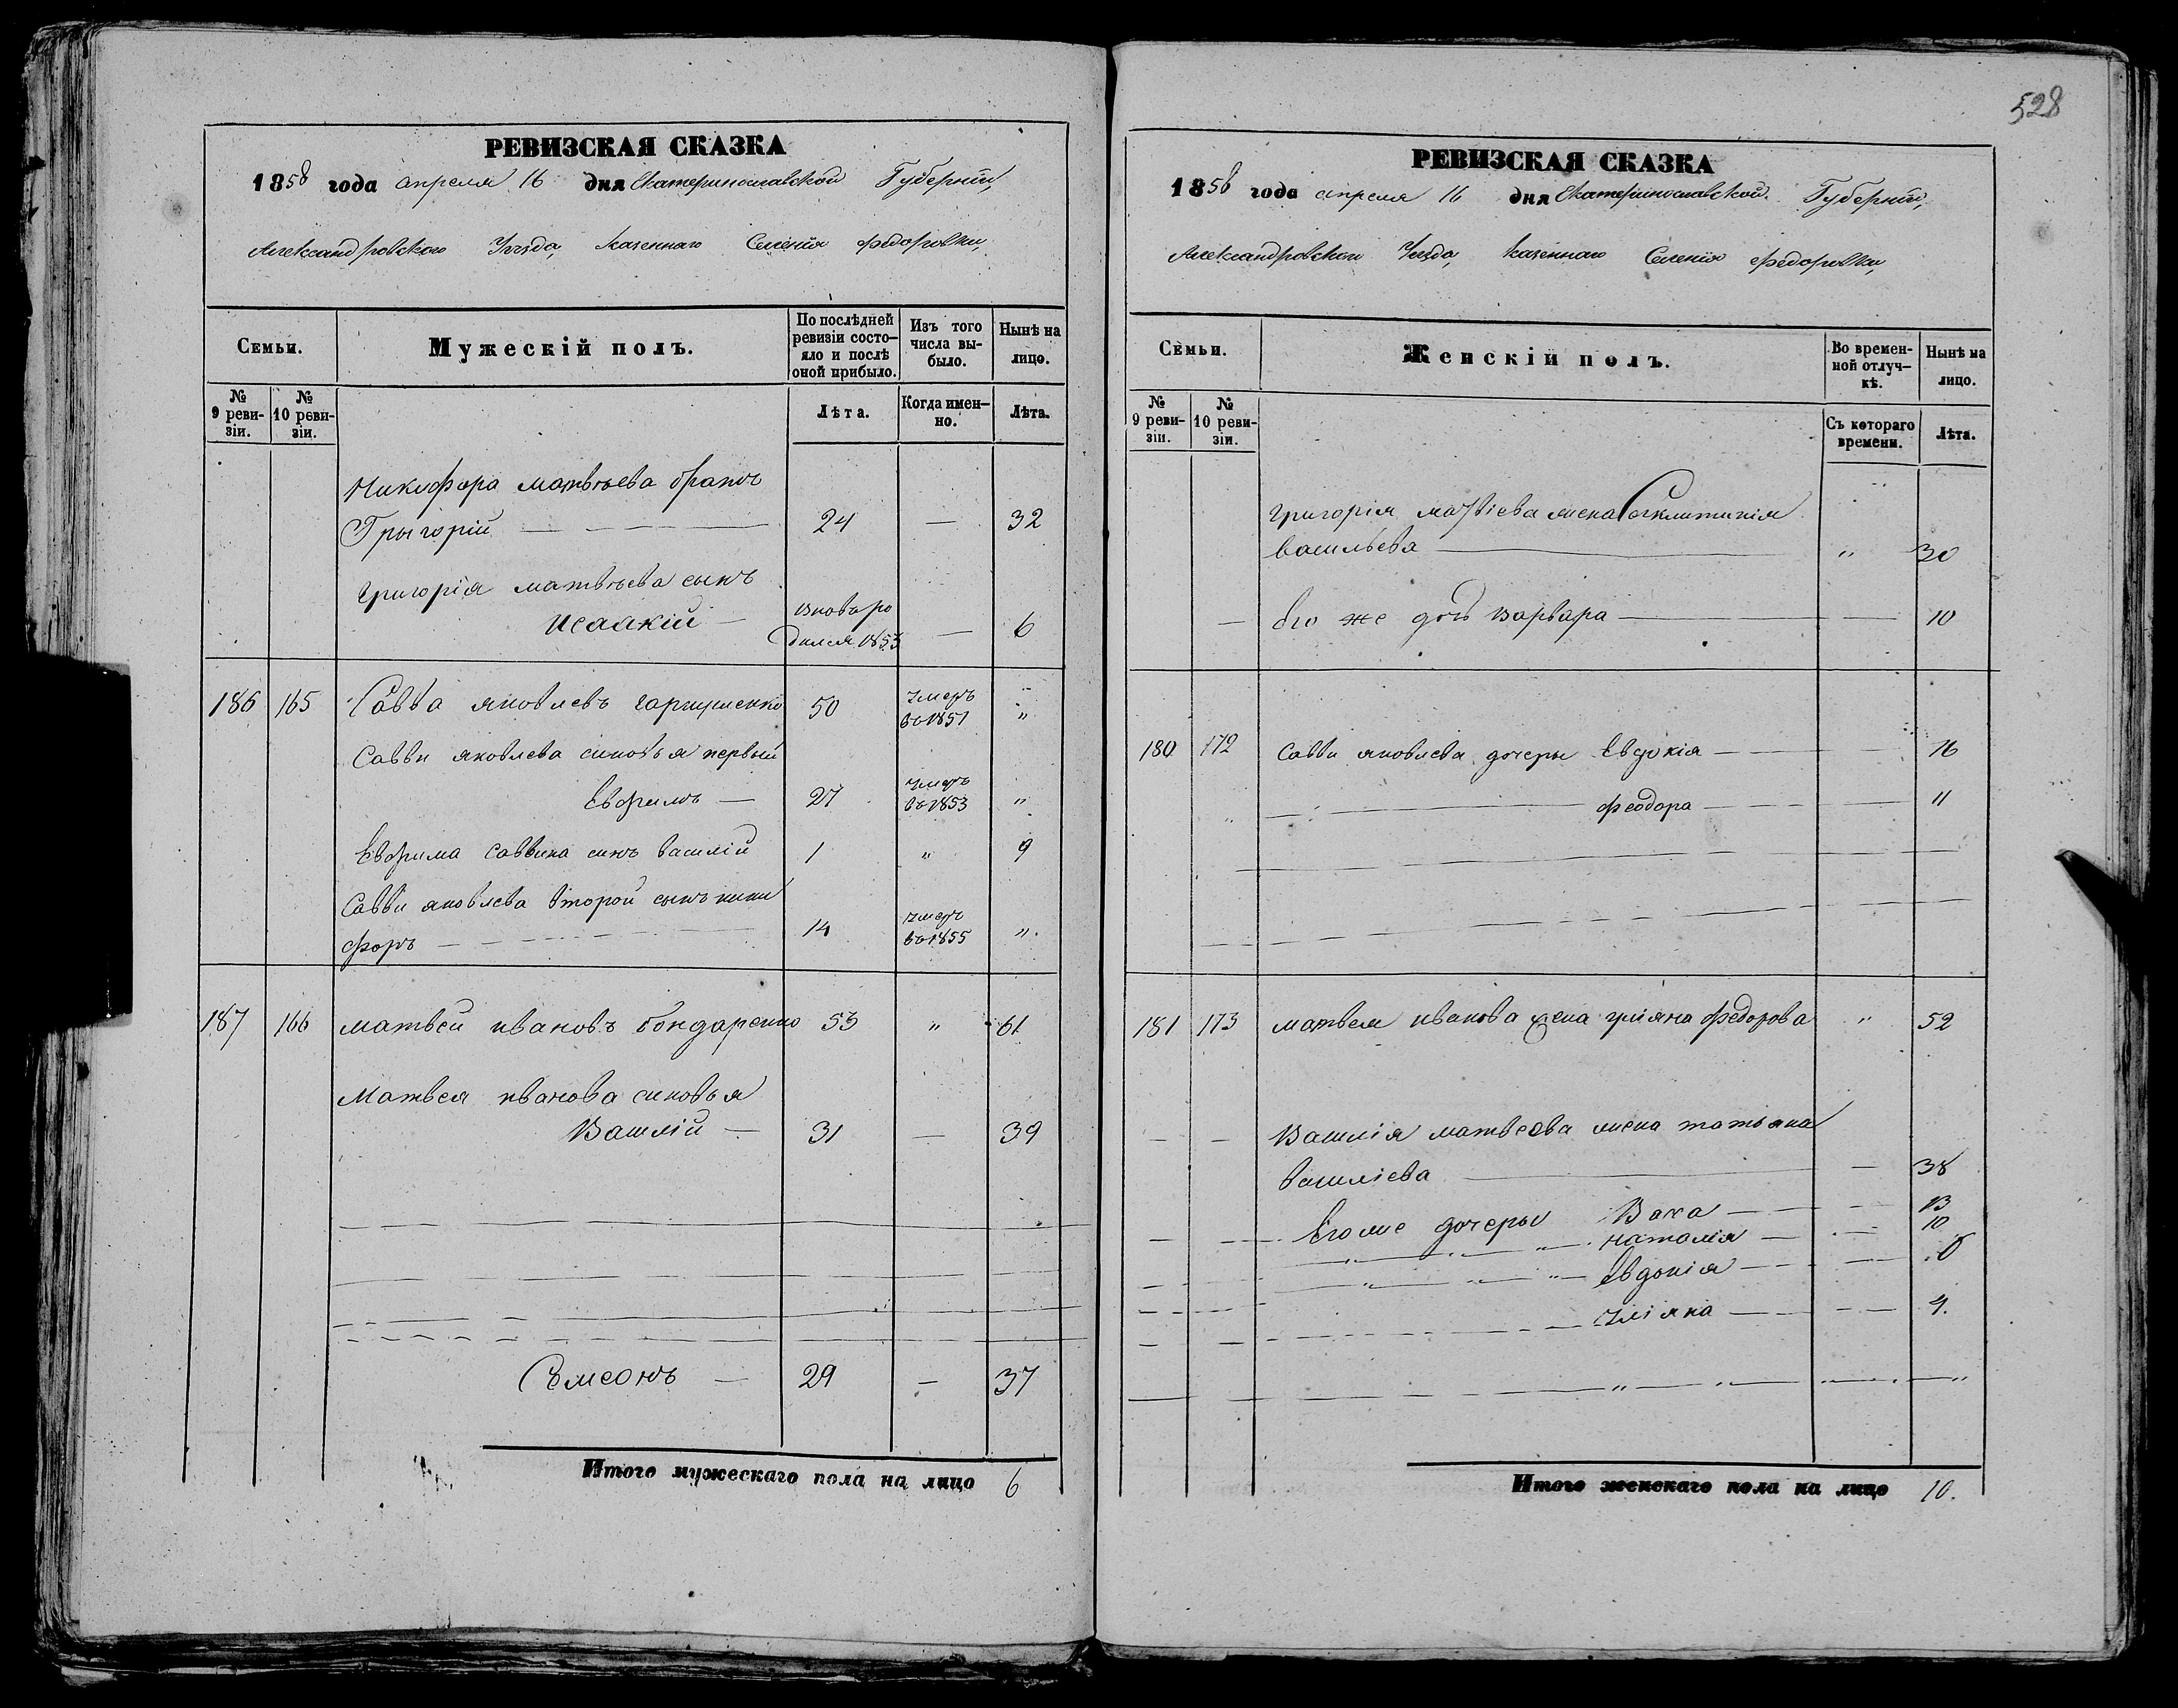 528
РЕВИЗСКАЯ СКАЗКА
1858 года апреля 16 дня Екатеринославской Губерніи,
Александровского Уезда, казеннаго Селенія Федоровки,
Семьи.
Мужескій полъ.
По послѣдней ревизіи состо-яло и послѣ оной прибыло.
Изъ того числа вы-было.
Нынѣ на лицо.
№ 9 реви-зіи.
№ 10 реви-зіи.
Лѣта.
Когда имен-но.
Лѣта.
Никифора матвѣева братъ
Григорій 24 — 32
Григорія матвѣева сынъ
Исаакій — вновь ро
дился 1853 — 6
186 165 Савва яковлевъ 50 умеръ
въ 1851 "
Савви яковлева синовья первый
Евфимъ — 27 умеръ
въ 1853 "
Евфима саввина синъ василій 1 " 9
Савви яковлева второй сынъ ники
форъ 14 умеръ
въ 1855 "
187 166 матвей ивановъ бондаренко 53 " 61
Матвея иванова синовья
Василій — 31 — 39
Сѣмеонъ — 29 — 37
Итого мужескаго пола на лицо 6
РЕВИЗСКАЯ СКАЗКА
1858 года апреля 16 дня Екатеринославской Губерніи,
Александровского Уезда, казеннаго Селенія Федоровки,
Семьи.
Женскій полъ.
Во времен-ной отлуч-кѣ.
Нынѣ на лицо.
№ 9 реви-зіи.
№ 10 реви-зіи.
Съ котораго времени.
Лѣта.
Григорія матвіева жена
васильева " 30
Его же дочь варвара — 10
180 172 Савви яковлева дочеры Евдокія — 16
феодора — 11
181 173 матвея иванова жена федорова " 52
Василія матвеева жена татьяна
василіева — 38
Егоже дочеры 13
наталія — 10
Евдокія —
Уліяна — 4.
Итого женскаго пола на лицо 10.